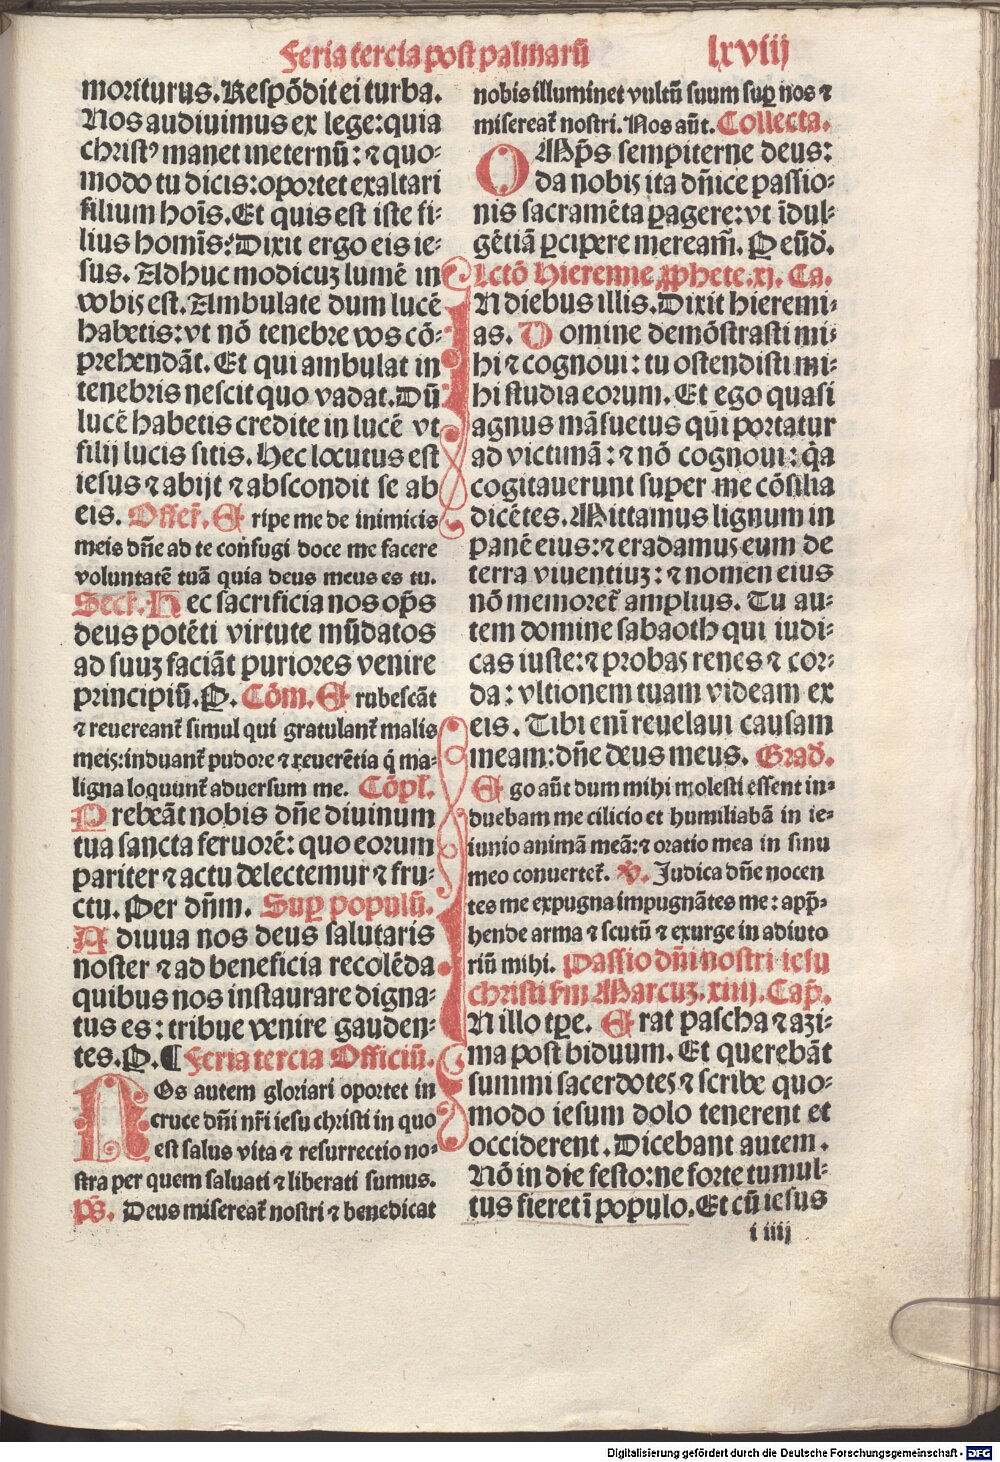 Feria tercia post palmarū lxviij
moriturus. Respōdit ei turba.
Nos audiuimus ex lege: quia
christꝰ manet in eternū: ⁊ quo⸗
modo tu dicis: oportet exaltari
filium hoīs. Et quis est iste fi⸗
lius homīs? Dixit ergo eis ie⸗
sus. Adhuc modicuꝫ lumē in
vobis est. Ambulate dum lucē
habetis: vt nō tenebre vos cō⸗
prehendāt. Et qui ambulat in
tenebris nescit quo vadat. Dū
lucē habetis credite in lucē vt
filij lucis sitis. Hec locutus est
iesus ⁊ abijt ⁊ abscondit se ab
eis. Offer̄. Eripe me de inimicis
meis dn̄e ad te confugi doce me facere
voluntatē tuā quia deus meus es tu.
Secr̄. Hec sacrificia nos op̄s
deus potēti virtute mūdatos
ad suuꝫ faciāt puriores venire
principiū. P. Cōm. Erubescāt
⁊ reuereant̄ simul qui gratulant̄ malis
meis: induant̄ pudore ⁊ reuerētia q̄ ma⸗
ligna loquunt̄ aduersum me. Cōpl̄.
Prebeāt nobis dn̄e diuinum
tua sancta feruorē: quo eorum
pariter ⁊ actu delectemur ⁊ fru⸗
ctu. Per dn̄m. Suꝑ populū.
Adiuua nos deus salutaris
noster ⁊ ad beneficia recolēda
quibus nos instaurare digna⸗
tus es: tribue venire gauden⸗
tes. P. ¶ Feria tercia Officiū.
NOs autem gloriari oportet in
cruce dn̄i nr̄i iesu christi in quo
est salus vita ⁊ resurrectio no⸗
stra per quem saluati ⁊ liberati sumus.
ps̄. Deus misereat̄ nostri ⁊ benedicat
nobis illuminet vultū suum suꝑ nos ⁊
misereat̄ nostri. Nos aūt. Collecta.
OMp̄s sempiterne deus:
da nobis ita dn̄ice passio⸗
nis sacramēta ꝑagere: vt īdul⸗
gētiā ꝑcipere meream̄. P eūd̄.
Lctō Hieremie ꝓphete. xj. Ca.
IN diebus illis. Dixit hieremi⸗
as. Domine demōstrasti mi⸗
hi ⁊ cognoui: tu ostendisti mi⸗
hi studia eorum. Et ego quasi
agnus māsuetus qui portatur
ad victimā: ⁊ nō cognoui: q̄a
cogitauerunt super me cōsilia
dicētes. Mittamus lignum in
panē eius: ⁊ eradamus eum de
terra viuentiuꝫ: ⁊ nomen eius
nō memoret̄ amplius. Tu au⸗
tem domine sabaoth qui iudi⸗
cas iuste: ⁊ probas renes ⁊ cor⸗
da: vltionem tuam videam ex
eis. Tibi enī reuelaui causam
meam: dn̄e deus meus. Grad̄.
Ego aūt dum mihi molesti essent in⸗
duebam me cilicio et humiliabā in ie⸗
iunio animā meā: ⁊ oratio mea in sinu
meo conuertet̄. ℣. Judica dn̄e nocen
tes me expugna impugnātes me: app̄⸗
hende arma ⁊ scutū ⁊ exurge in adiuto
riū mihi. Passio dn̄i nostri iesu
christi sm̄ Marcuꝫ. xiiij. Cap̄.
IN illo tꝑe. Erat pascha ⁊ azi⸗
ma post biduum. Et querebāt
summi sacerdotes ⁊ scribe quo⸗
modo iesum dolo tenerent et
occiderent. Dicebant autem.
Nō in die festo: ne forte tumul⸗
tus fieret ī populo. Et cū iesus
i iiij
Digitalisierung gefördert durch die Deutsche Forschungsgemeinschaft - DFG